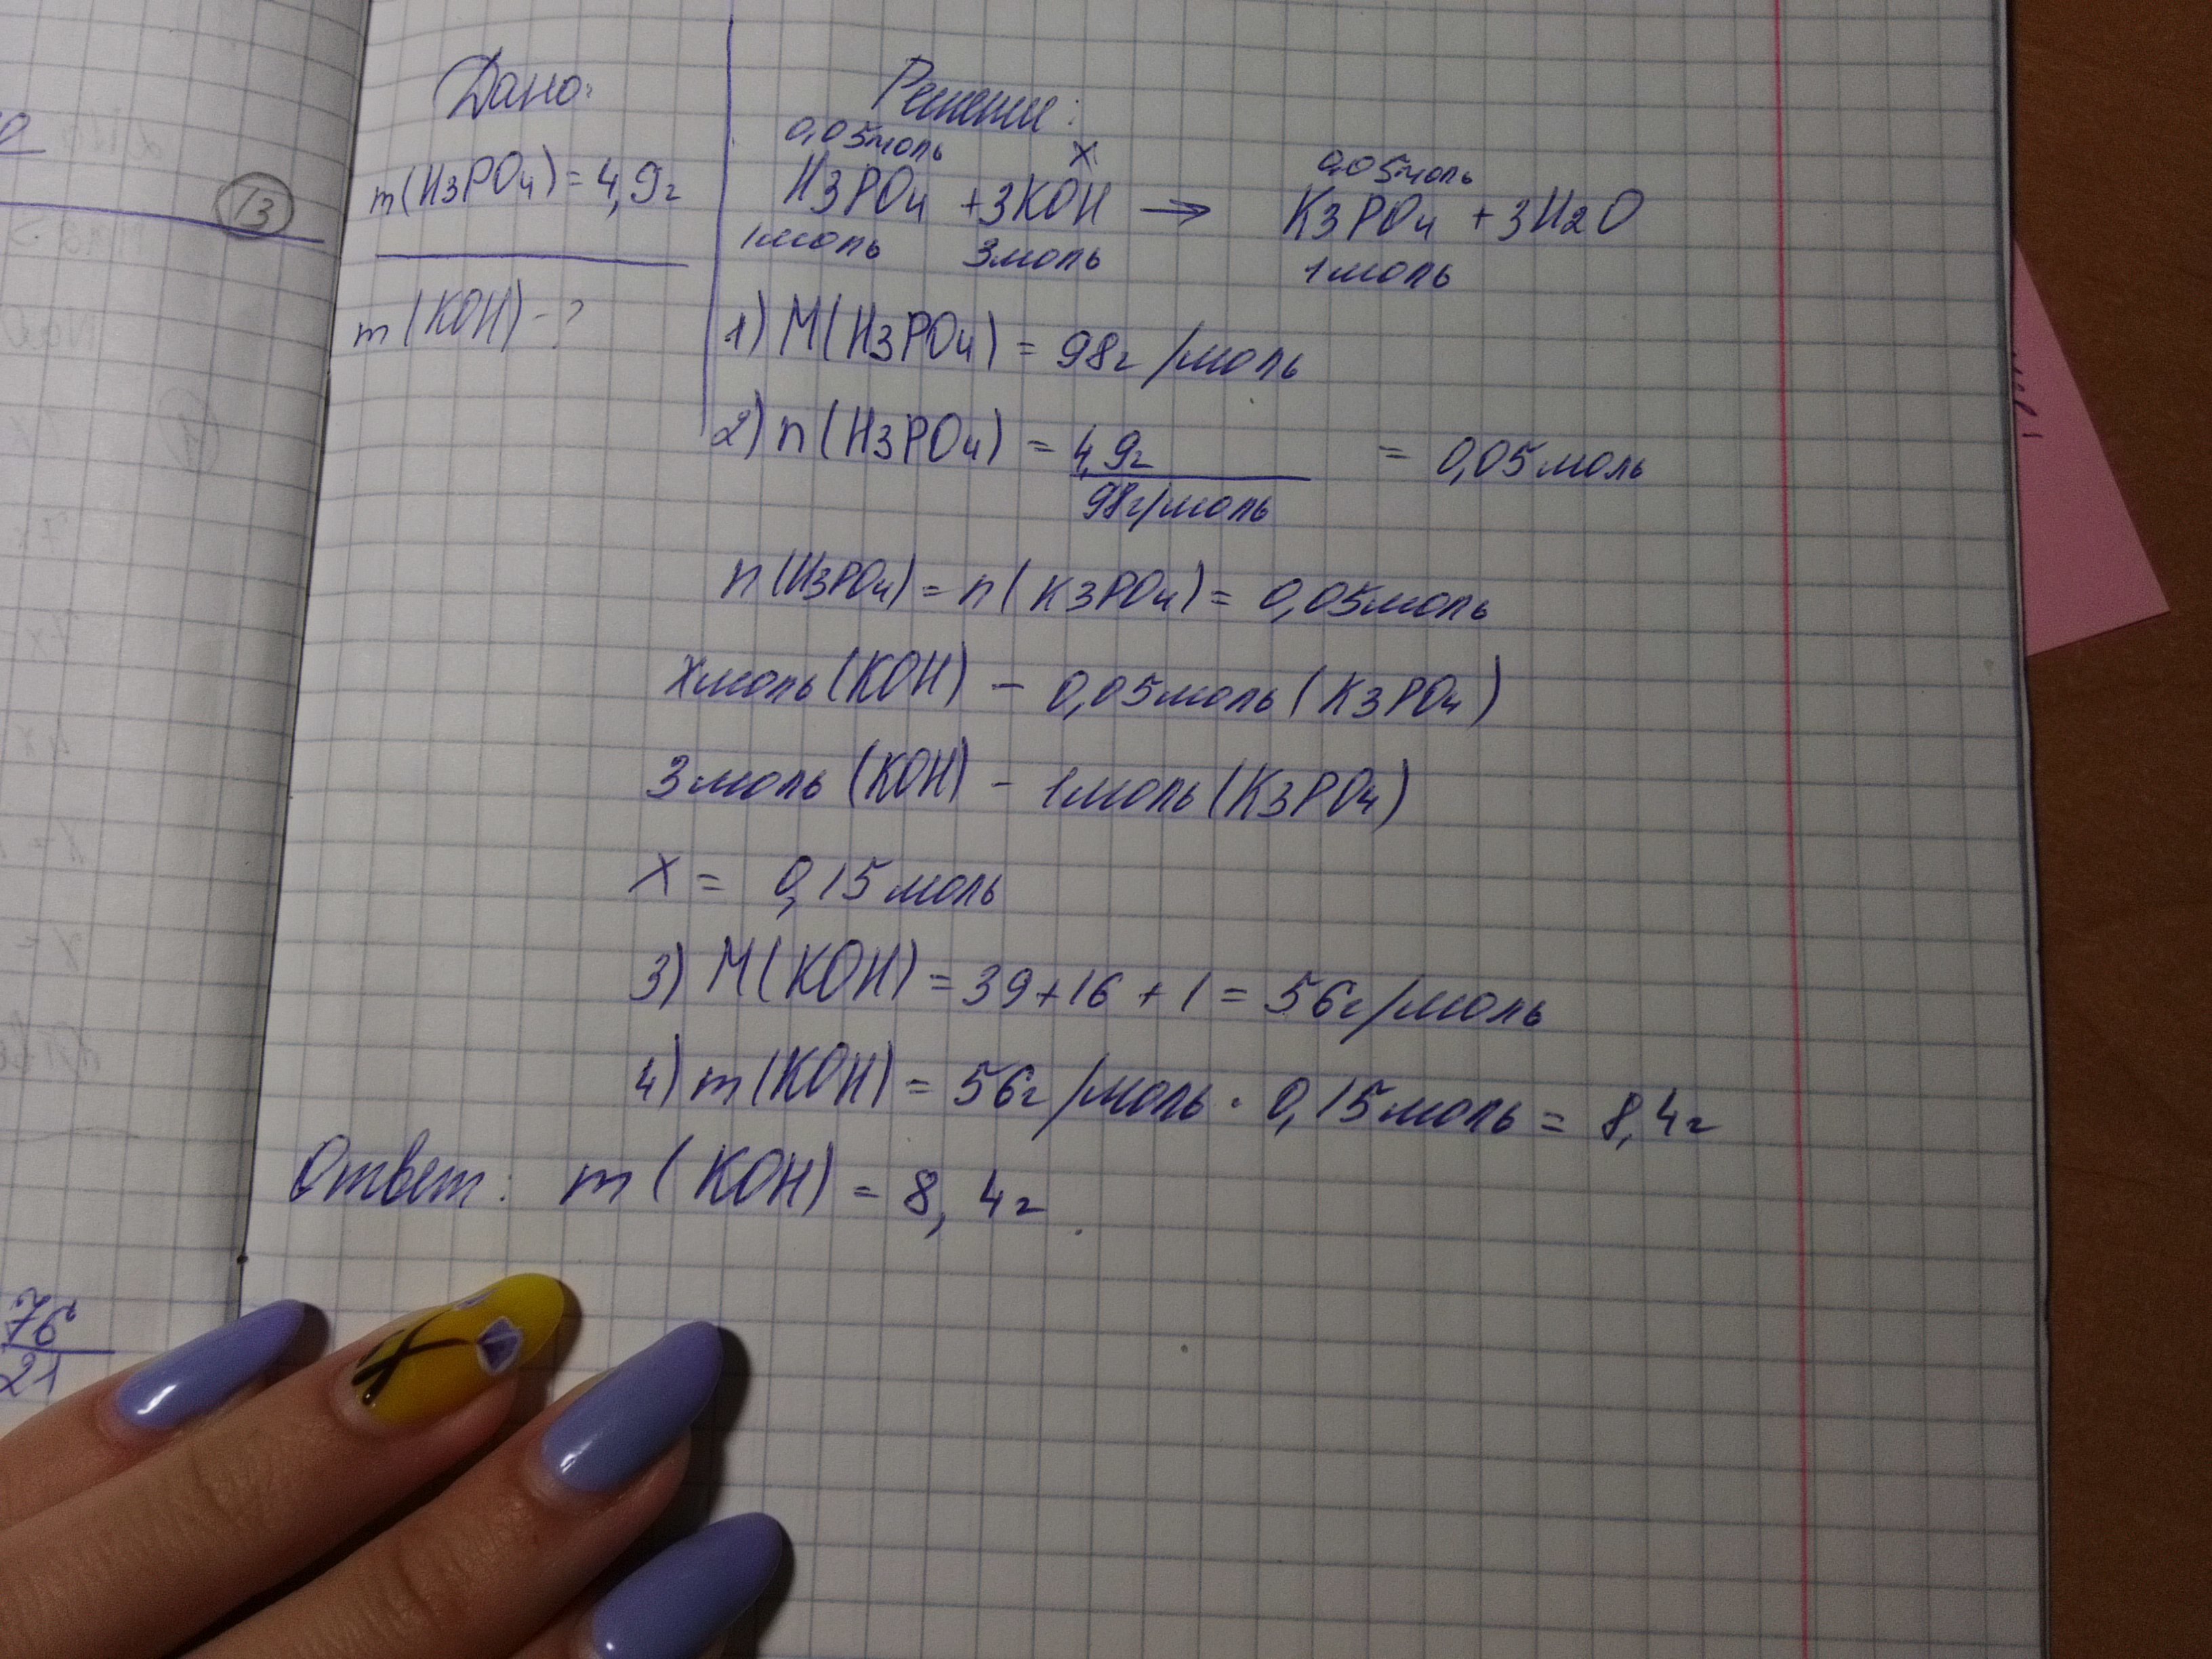 13
Дано:
m(H3PO4) = 4,9г
m(KOH) - ?
Решение:
0,05моль x 0,05моль
H3PO4 + 3KOH → K3PO4 + 3H2O
1моль 3моль 1моль
1) M(H3PO4) = 98г/моль
2) n(H3PO4) = 4,9г / 98г/моль = 0,05моль
n(H3PO4) = n(K3PO4) = 0,05моль
Xмоль(KOH) - 0,05моль(K3PO4)
3моль(KOH) - 1моль(K3PO4)
X = 0,15моль
3) M(KOH) = 39+16+1 = 56г/моль
4) m(KOH) = 56г/моль · 0,15моль = 8,4г
Ответ: m(KOH) = 8,4г.
76
21